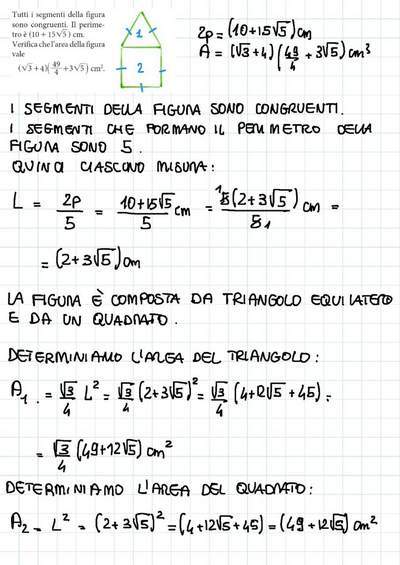 Tutti i segmenti della figura
sono congruenti. Il perime-
tro è (10 + 15√5) cm.
Verifica che l'area della figura
vale
(√3 + 4)(49/4 + 3√5) cm².
1
2
2p = (10+15√5) cm
A = (√3+4)(49/4 + 3√5) cm²
I SEGMENTI DELLA FIGURA SONO CONGRUENTI.
I SEGMENTI CHE FORMANO IL PERIMETRO DELLA
FIGURA SONO 5.
QUINDI CIASCUNO MISURA:
L = 2P/5 = 10+15√5/5 cm = ¹5(2+3√5)/5₁ cm =
= (2+3√5) cm
LA FIGURA È COMPOSTA DA TRIANGOLO EQUILATERO
E DA UN QUADRATO.
DETERMINIAMO L'AREA DEL TRIANGOLO:
A₁ = √3/4 L² = √3/4 (2+3√5)² = √3/4 (4+12√5+45) =
= √3/4 (49+12√5) cm²
DETERMINIAMO L'AREA DEL QUADRATO:
A₂ = L² = (2+3√5)² = (4+12√5+45) = (49+12√5) cm²